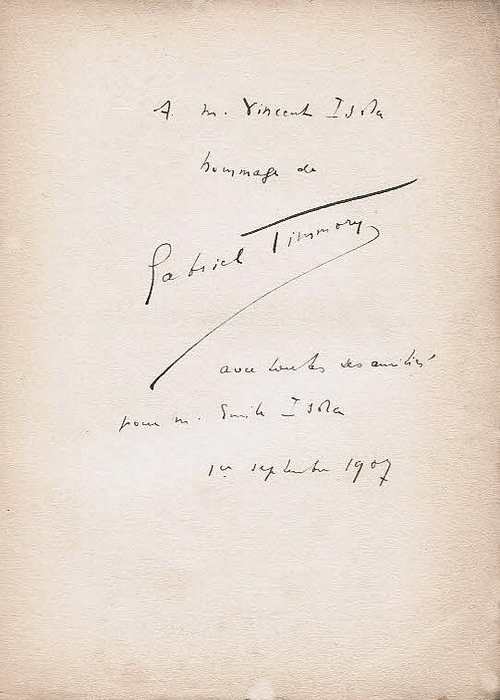 A M. Vincent Isola
hommage de
Gabriel Timmory
avec toutes ses amitiés
pour M. Emile Isola
1er septembre 1907